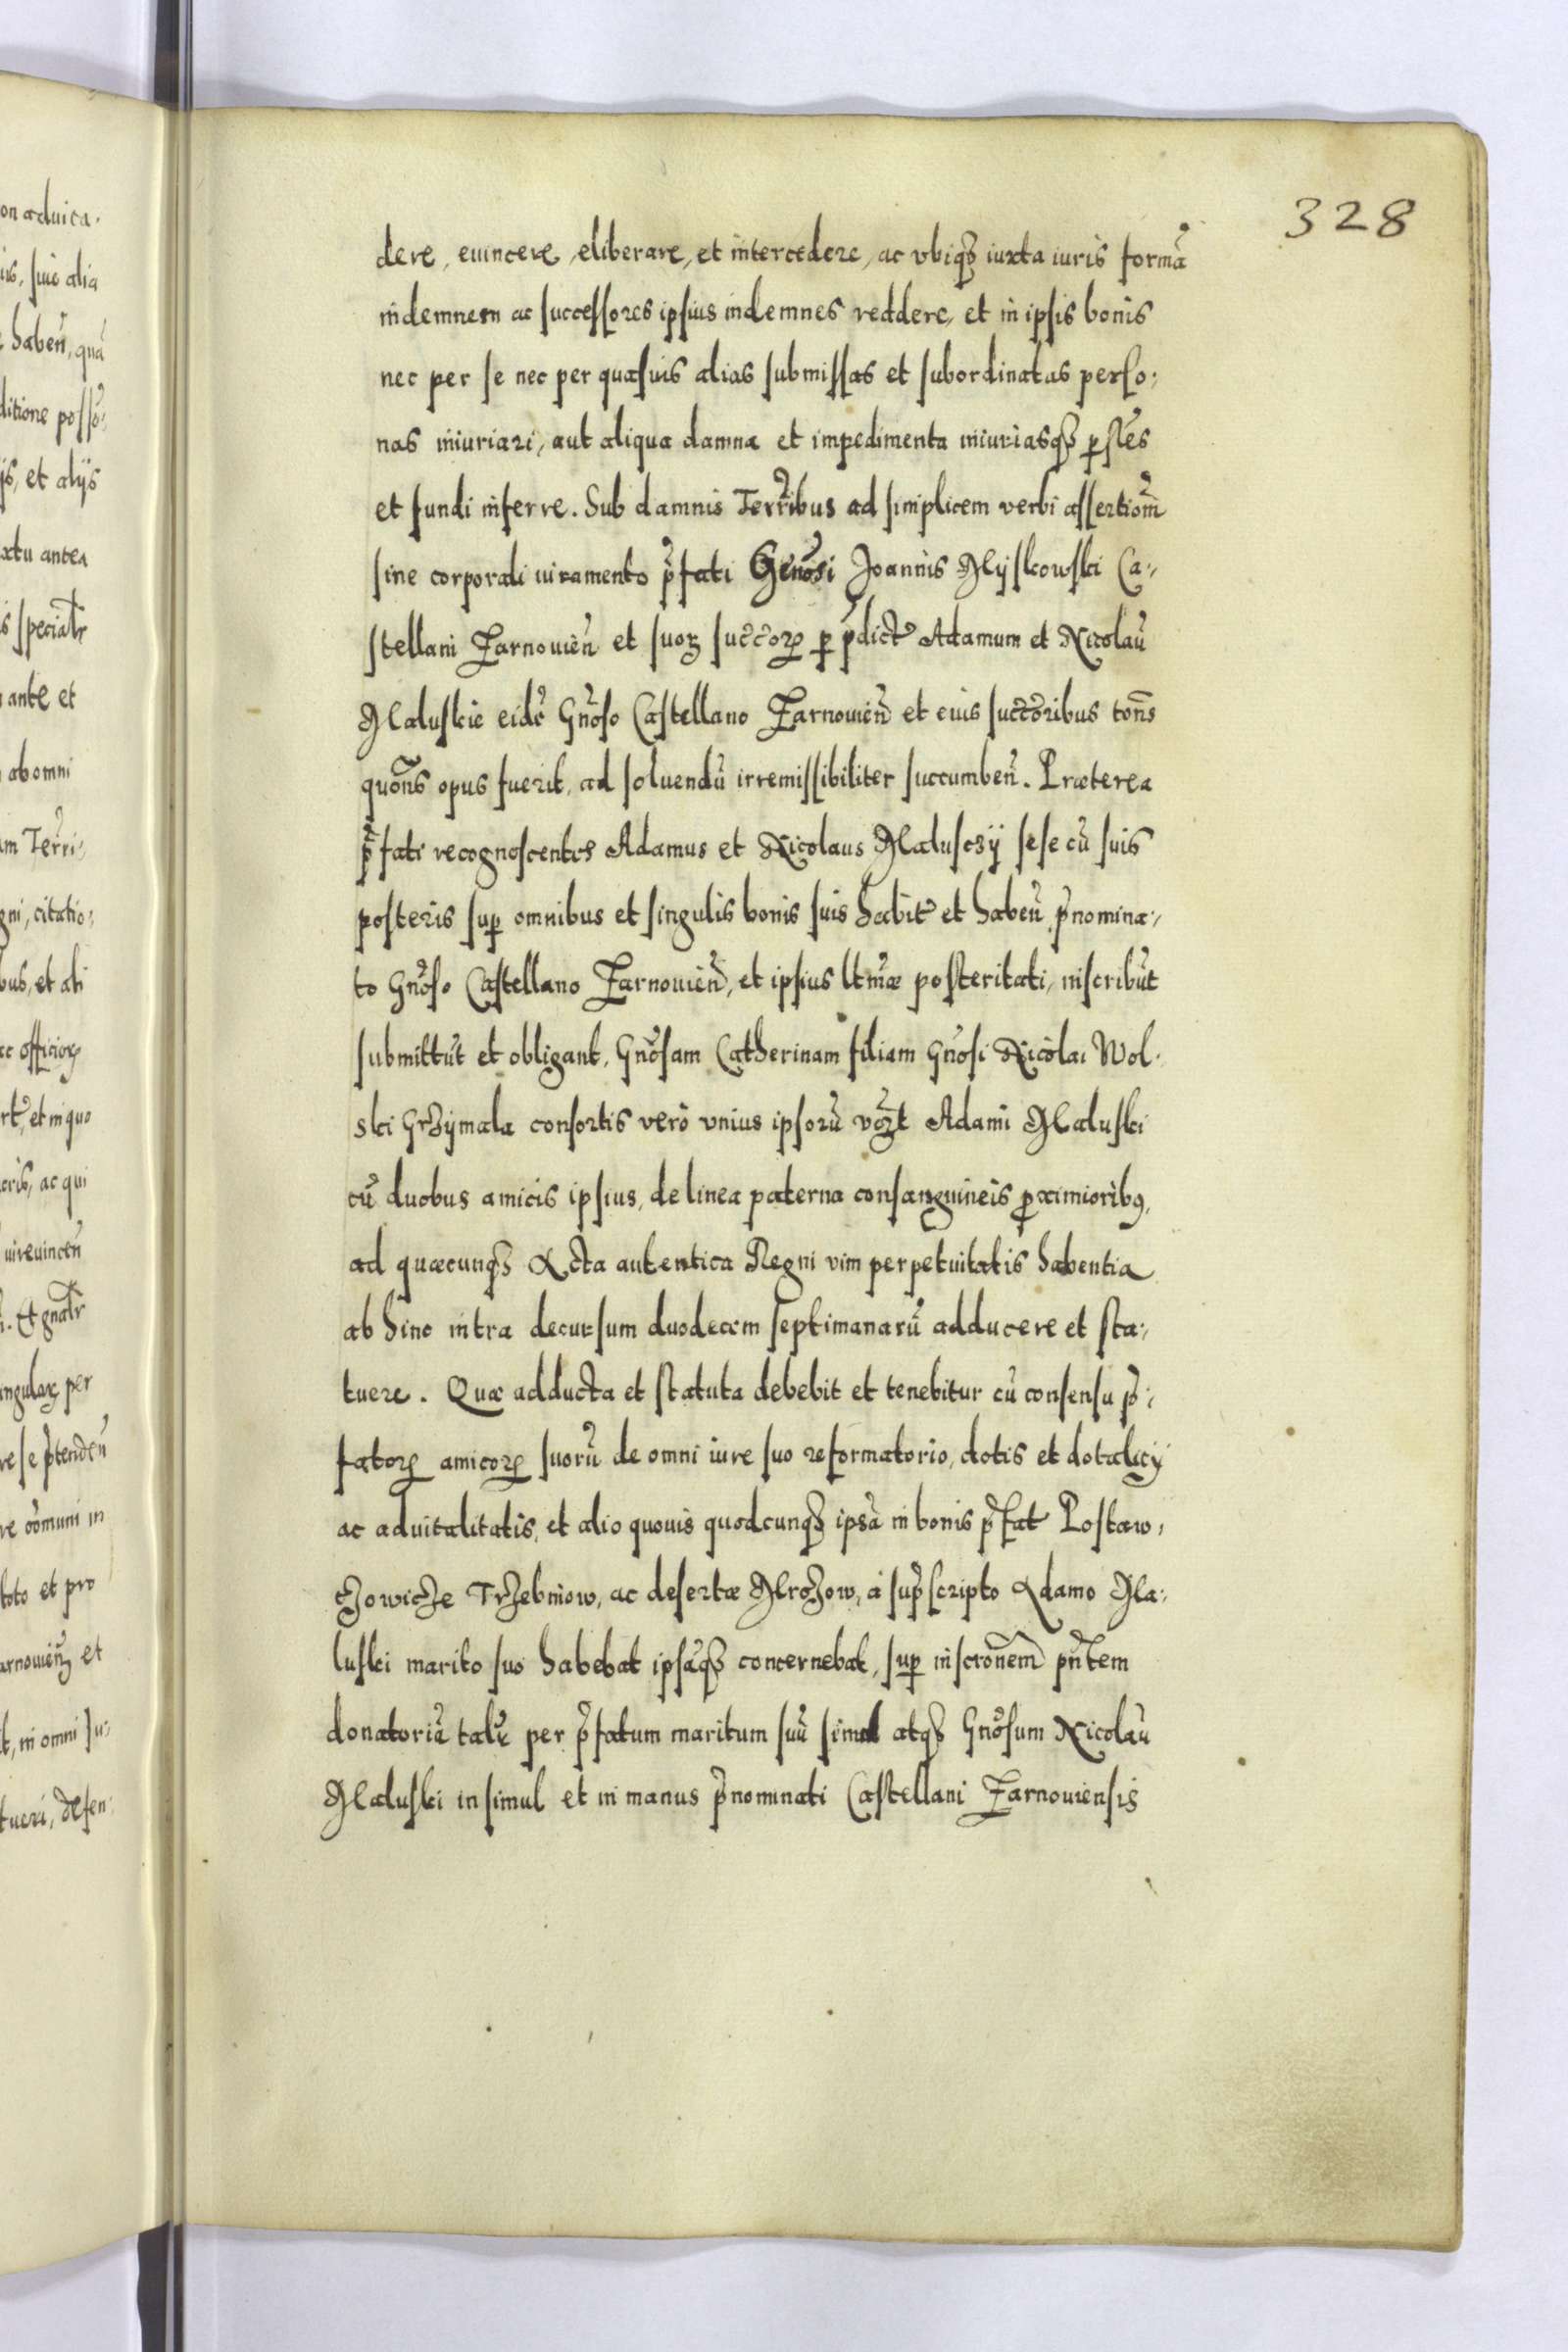 328
dere, euincere, eliberare, et intercedere, ac vbiq3 iuxta iuris formā
indemnem ac successores ipsius indemnes reddere, et in ipsis bonis
nec per se nec per quasuis alias submissas et subordinatas perso:
nas iniuriari, aut aliqua damna et impedimenta iniuriasq3
et fundi inferre. Sub damnis Terribus ad simplicem verbi assertiom̄
sine corporali iuramento p̄fati Genōsi Joannis Myskowski Ca:
stellani Zarnouień et suoꝝ succ̄oꝝ ꝑ p̄dict Adamum et Nicolaū
Maluskie eidē Gn̄oso Castellano Zarnouień et eius succ̄oribus tōns
quōns opus fuerit, ad soluendū irremissibiliter succumbeń. Præterea
p̄fati recognoscentes Adamus et Nicolaus Malusczÿ sese cū suis
posteris suꝑ omnibus et singulis bonis suis habit et habeń, p̄nomina:
to Gn̄oso Castellano Zarnouień, et ipsius ltmæ posteritati, inscribūt
submittūt et obligant, Gn̄osam Catherinam filiam Gn̄osi Nicolai Wol:
ski Grzÿmala consortis verò vnius ipsorū Adami Maluski
cū duobus amicis ipsius, de linea paterna consanguineis ꝓximioribꝰ,
ad quæcunq3 Acta autentica Regni vim perpetuitatis habentia
ab hinc intra decursum duodecem septimanarū adducere et sta:
tuere. Quæ adducta et statuta debebit et tenebitur cū consensu p̄:
fatoꝝ amicoꝝ suorū de omni iure suo reformatorio, dotis et dotalicÿ
ac aduitalitatis, et alio quouis quodcunq3 ipsā in bonis p̄fat Postaw:
czowicze Trzebniow, ac desertæ Mrozow, à sup̄scripto Adamo Ma:
luski marito suo habebat ipsāq3 concernebat, suꝑ inscronem̄ pn̄tem
donatoriā talē per p̄fatum maritum suū simul atq3 Gn̄osum Nicolaū
Maluski insimul et in manus p̄nominati Castellani Zarnouiensis